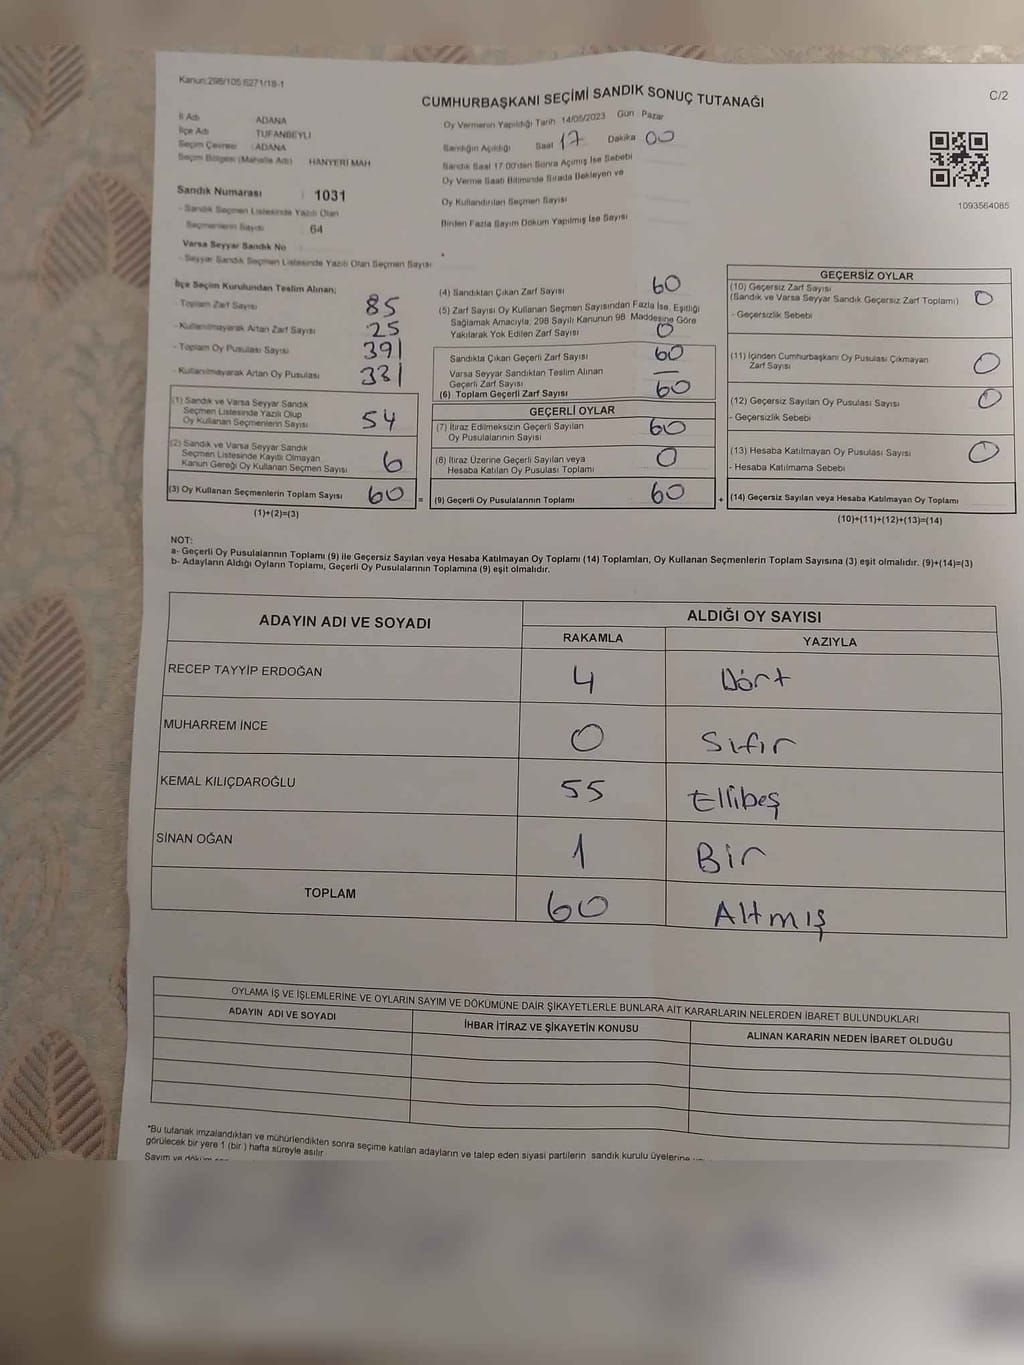 Kanun:298/105 6271/18-1
CUMHURBAŞKANI SEÇİMİ SANDIK SONUÇ TUTANAĞI
C/2
İl Adı ADANA
İlçe Adı TUFANBEYLİ
Seçim Çevresi : ADANA
Seçim Bölgesi (Mahalle Adı) HANYERİ MAH
Sandık Numarası : 1031
- Sandık Seçmen Listesinde Yazılı Olan
Seçmenlerin Sayısı 64
Varsa Seyyar Sandık No
- Seyyar Sandık Seçmen Listesinde Yazılı Olan Seçmen Sayısı
Oy Vermenin Yapıldığı Tarih 14/05/2023 Gün Pazar
Sandığın Açıldığı Saat 17 Dakika 00
Sandık Saat 17:00'den Sonra Açılmış İse Sebebi
Oy Verme Saati Bitiminde Sırada Bekleyen ve
Oy Kullandırılan Seçmen Sayısı
Birden Fazla Sayım Döküm Yapılmış İse Sayısı
1093564085
İlçe Seçim Kurulundan Teslim Alınan;
- Toplam Zarf Sayısı 85
- Kullanılmayarak Artan Zarf Sayısı 25
- Toplam Oy Pusulası Sayısı 391
- Kullanılmayarak Artan Oy Pusulası 331
(1) Sandık ve Varsa Seyyar Sandık
Seçmen Listesinde Yazılı Olup
Oy Kullanan Seçmenlerin Sayısı 54
(2) Sandık ve Varsa Seyyar Sandık
Seçmen Listesinde Kayıtlı Olmayan
Kanun Gereği Oy Kullanan Seçmen Sayısı 6
(3) Oy Kullanan Seçmenlerin Toplam Sayısı 60 =
(1)+(2)=(3)
(4) Sandıktan Çıkan Zarf Sayısı 60
(5) Zarf Sayısı Oy Kullanan Seçmen Sayısından Fazla İse, Eşitliği
Sağlamak Amacıyla, 298 Sayılı Kanunun 98. Maddesine Göre
Yakılarak Yok Edilen Zarf Sayısı 0
Sandıkta Çıkan Geçerli Zarf Sayısı 60
Varsa Seyyar Sandıktan Teslim Alınan
Geçerli Zarf Sayısı —
(6) Toplam Geçerli Zarf Sayısı 60
GEÇERLİ OYLAR
(7) İtiraz Edilmeksizin Geçerli Sayılan
Oy Pusulalarının Sayısı 60
(8) İtiraz Üzerine Geçerli Sayılan veya
Hesaba Katılan Oy Pusulası Toplamı 0
(9) Geçerli Oy Pusulalarının Toplamı 60 +
GEÇERSİZ OYLAR
(10) Geçersiz Zarf Sayısı
(Sandık ve Varsa Seyyar Sandık Geçersiz Zarf Toplamı) 0
- Geçersizlik Sebebi
(11) İçinden Cumhurbaşkanı Oy Pusulası Çıkmayan
Zarf Sayısı 0
(12) Geçersiz Sayılan Oy Pusulası Sayısı 0
- Geçersizlik Sebebi
(13) Hesaba Katılmayan Oy Pusulası Sayısı 0
- Hesaba Katılmama Sebebi
(14) Geçersiz Sayılan veya Hesaba Katılmayan Oy Toplamı
(10)+(11)+(12)+(13)=(14)
NOT:
a- Geçerli Oy Pusulalarının Toplamı (9) ile Geçersiz Sayılan veya Hesaba Katılmayan Oy Toplamı (14) Toplamları, Oy Kullanan Seçmenlerin Toplam Sayısına (3) eşit olmalıdır. (9)+(14)=(3)
b- Adayların Aldığı Oyların Toplamı, Geçerli Oy Pusulalarının Toplamına (9) eşit olmalıdır.
ADAYIN ADI VE SOYADI
ALDIĞI OY SAYISI
RAKAMLA YAZIYLA
RECEP TAYYİP ERDOĞAN 4 Dört
MUHARREM İNCE 0 Sıfır
KEMAL KILIÇDAROĞLU 55 Ellibeş
SİNAN OĞAN 1 Bir
TOPLAM 60 Altmış
OYLAMA İŞ VE İŞLEMLERİNE VE OYLARIN SAYIM VE DÖKÜMÜNE DAİR ŞİKAYETLERLE BUNLARA AİT KARARLARIN NELERDEN İBARET BULUNDUKLARI
ADAYIN ADI VE SOYADI
İHBAR İTİRAZ VE ŞİKAYETİN KONUSU
ALINAN KARARIN NEDEN İBARET OLDUĞU
*Bu tutanak imzalandıktan ve mühürlendikten sonra seçime katılan adayların ve talep eden siyasi partilerin sandık kurulu üyelerine
görülecek bir yere 1 (bir ) hafta süreyle asılır.
Sayım ve